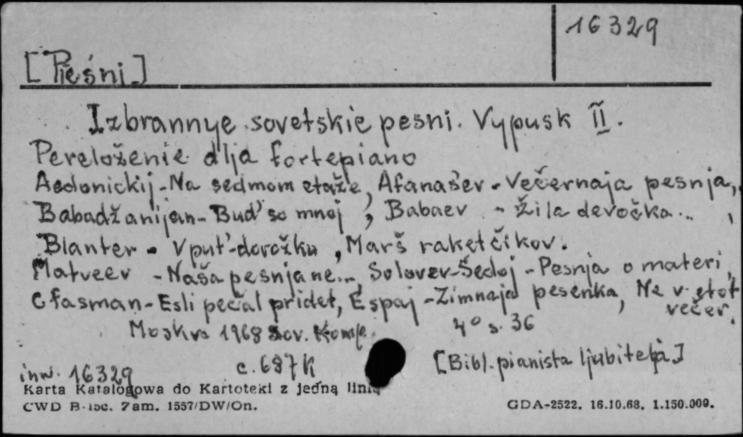 16329
[Pieśni]
Izbrannye sovetskie pesni. Vypusk II.
Pereloženie dlja fortepiano
Aedonickij - Na sedmom etaže, Afanas'ev - Večernaja pesnja,
Babadžanijan - Bud' so mnoj, Babaev - Žila devočka...,
Blanter - V put'-dorožku, Marš raketčikov.
Matveev - Naša pesnja ne..., Solovev-Šedoj - Pesnja o materi,
Cfasman - Esli pečal pridet, Ešpaj - Zimnaja pesenka, Ne v etot večer.
Moskva 1968 Sov. Komp. 4° s. 36
inw. 16329 c. 687K [Bibl. pianista ljubitelja]
Karta Katalogowa do Kartoteki z jedną linią
CWD B-156. Zam. 1557/DW/On. GDA-2522. 16.10.68. 1.150.000.